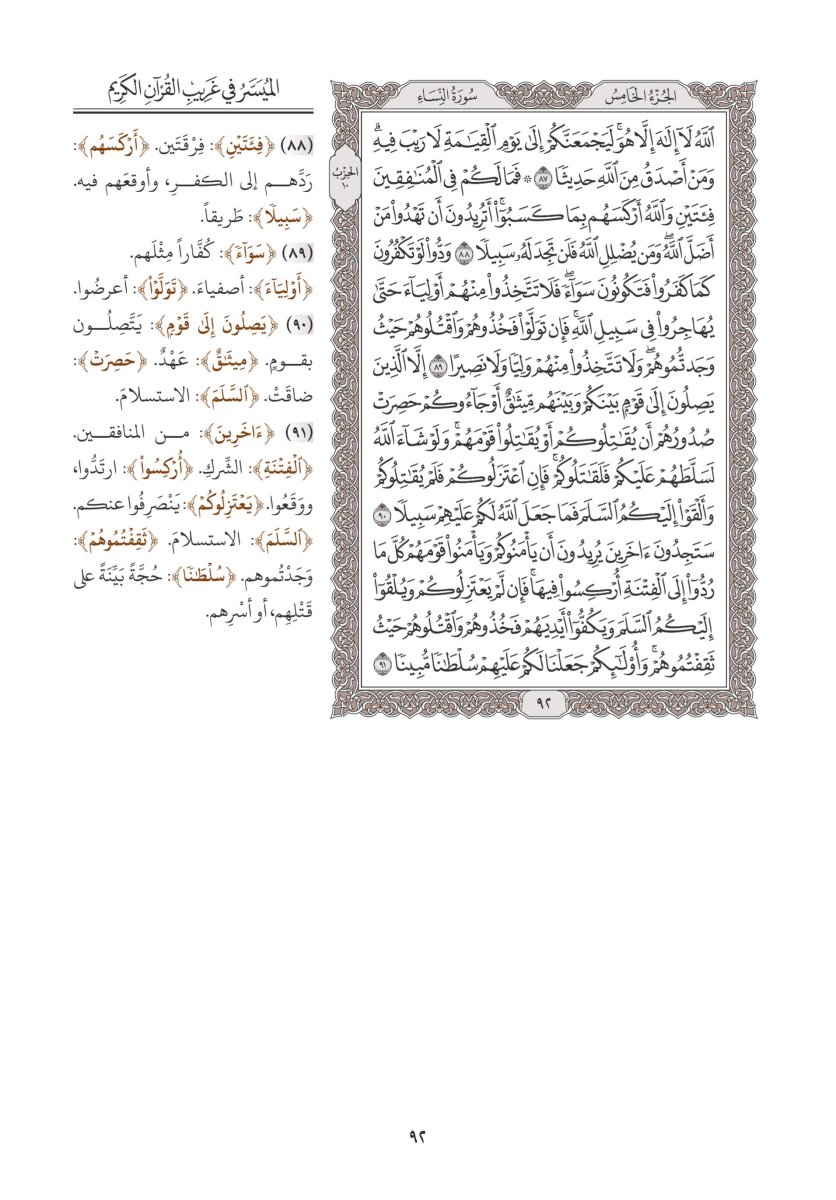 الجُزْءُ الخَامِسُ
سُورَةُ النِّسَاءِ
ٱللَّهُ لَآ إِلَٰهَ إِلَّا هُوَۚ لَيَجْمَعَنَّكُمْ إِلَىٰ يَوْمِ ٱلْقِيَٰمَةِ لَا رَيْبَ فِيهِۗ
وَمَنْ أَصْدَقُ مِنَ ٱللَّهِ حَدِيثٗا ٨٧ ۞ فَمَا لَكُمْ فِي ٱلْمُنَٰفِقِينَ
فِئَتَيْنِ وَٱللَّهُ أَرْكَسَهُم بِمَا كَسَبُوٓاْۚ أَتُرِيدُونَ أَن تَهْدُواْ مَنْ
أَضَلَّ ٱللَّهُۖ وَمَن يُضْلِلِ ٱللَّهُ فَلَن تَجِدَ لَهُۥ سَبِيلٗا ٨٨ وَدُّواْ لَوْ تَكْفُرُونَ
كَمَا كَفَرُواْ فَتَكُونُونَ سَوَآءٗۖ فَلَا تَتَّخِذُواْ مِنْهُمْ أَوْلِيَآءَ حَتَّىٰ
يُهَاجِرُواْ فِي سَبِيلِ ٱللَّهِۚ فَإِن تَوَلَّوْاْ فَخُذُوهُمْ وَٱقْتُلُوهُمْ حَيْثُ
وَجَدتُّمُوهُمْۖ وَلَا تَتَّخِذُواْ مِنْهُمْ وَلِيّٗا وَلَا نَصِيرًا ٨٩ إِلَّا ٱلَّذِينَ
يَصِلُونَ إِلَىٰ قَوْمِۭ بَيْنَكُمْ وَبَيْنَهُم مِّيثَٰقٌ أَوْ جَآءُوكُمْ حَصِرَتْ
صُدُورُهُمْ أَن يُقَٰتِلُوكُمْ أَوْ يُقَٰتِلُواْ قَوْمَهُمْۚ وَلَوْ شَآءَ ٱللَّهُ
لَسَلَّطَهُمْ عَلَيْكُمْ فَلَقَٰتَلُوكُمْۚ فَإِنِ ٱعْتَزَلُوكُمْ فَلَمْ يُقَٰتِلُوكُمْ
وَأَلْقَوْاْ إِلَيْكُمُ ٱلسَّلَمَ فَمَا جَعَلَ ٱللَّهُ لَكُمْ عَلَيْهِمْ سَبِيلٗا ٩٠
سَتَجِدُونَ ءَاخَرِينَ يُرِيدُونَ أَن يَأْمَنُوكُمْ وَيَأْمَنُواْ قَوْمَهُمْ كُلَّ مَا
رُدُّوٓاْ إِلَى ٱلْفِتْنَةِ أُرْكِسُواْ فِيهَاۚ فَإِن لَّمْ يَعْتَزِلُوكُمْ وَيُلْقُوٓاْ
إِلَيْكُمُ ٱلسَّلَمَ وَيَكُفُّوٓاْ أَيْدِيَهُمْ فَخُذُوهُمْ وَٱقْتُلُوهُمْ حَيْثُ
ثَقِفْتُمُوهُمْۚ وَأُوْلَٰٓئِكُمْ جَعَلْنَا لَكُمْ عَلَيْهِمْ سُلْطَٰنٗا مُّبِينٗا ٩١
٩٢
الحِزْبُ
١٠
المُيَسَّرُ في غَرِيبِ القُرْآنِ الكَرِيمِ
(٨٨) ﴿فِئَتَيْنِ﴾: فِرْقَتَين. ﴿أَرْكَسَهُم﴾:
رَدَّهـم إلى الكفـرِ، وأوقعَهم فيه.
﴿سَبِيلٗا﴾: طَريقاً.
(٨٩) ﴿سَوَآءٗ﴾: كُفَّاراً مِثْلَهم.
﴿أَوْلِيَآءَ﴾: أصفياءَ. ﴿تَوَلَّوْاْ﴾: أعرضُوا.
(٩٠) ﴿يَصِلُونَ إِلَىٰ قَوْمِۭ﴾: يَتَّصِلُـون
بقـومٍ. ﴿مِيثَٰقٌ﴾: عَهْدٌ. ﴿حَصِرَتْ﴾:
ضاقَتْ. ﴿ٱلسَّلَمَ﴾: الاستسلامَ.
(٩١) ﴿ءَاخَرِينَ﴾: مـن المنافقـين.
﴿ٱلْفِتْنَةِ﴾: الشِّركِ. ﴿أُرْكِسُواْ﴾: ارتَدُّوا،
ووَقَعُوا. ﴿يَعْتَزِلُوكُمْ﴾: يَنْصَرِفُوا عنكم.
﴿ٱلسَّلَمَ﴾: الاستسلامَ. ﴿ثَقِفْتُمُوهُمْ﴾:
وَجَدْتُموهم. ﴿سُلْطَٰنٗا﴾: حُجَّةً بَيِّنَةً على
قَتْلِهِم، أو أسْرِهِم.
٩٢